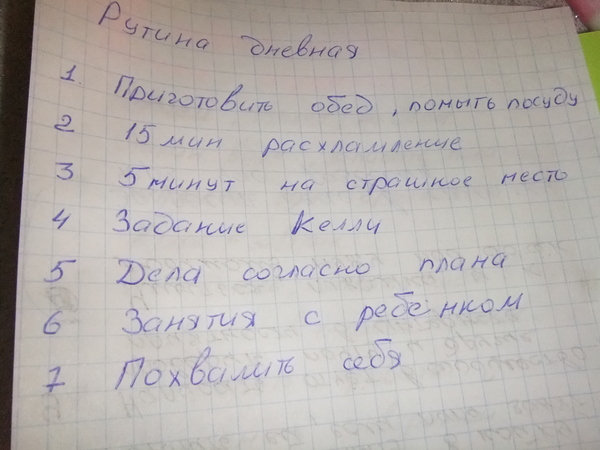 Рутина дневная
1. Приготовить обед, помыть посуду
2 15 мин расхламление
3 5 минут на страшное место
4 Задание Келли
5 Дела согласно плана
6 Занятия с ребёнком
7 Похвалить себя